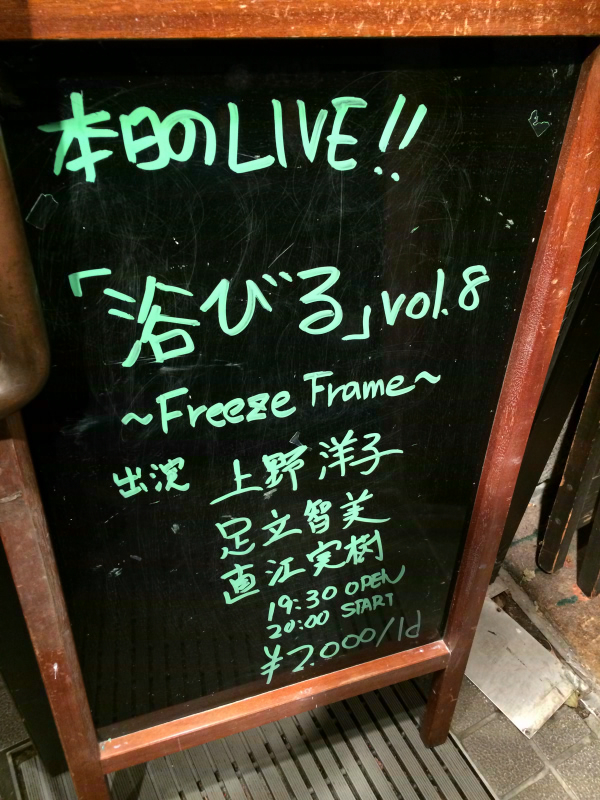 本日のLIVE!!
「浴びる」vol.8
~Freeze Frame~
出演 上野洋子
足立智美
直江実樹
19:30 OPEN
20:00 START
¥2.000/1d